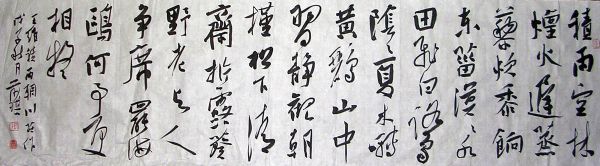 積雨空林
煙火遲蒸
藜炊黍餉
東菑漠々水
田飛白鷺
陰々夏木囀
黃鸝山中
習靜觀朝
槿松下清
齋折露葵
野老與人
爭席罷海
鷗何事更
相疑
王維積雨輞川莊作